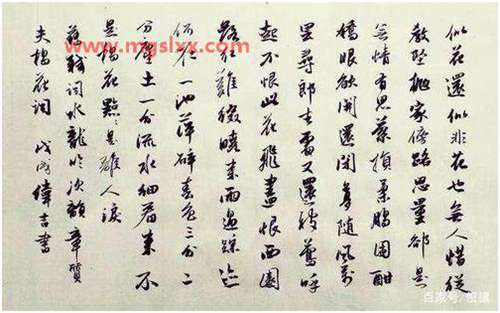 似花還似非花也無人惜從
教墜拋家傍路思量卻是
無情有思縈損柔腸困酣
嬌眼欲開還閉夢隨風萬
里尋郎去處又還被鶯呼
起不恨此花飛盡恨西園
落紅難綴曉來雨過蹤迹
何在一池萍碎春色三分二
分塵土一分流水細看來不
是楊花點點是離人淚
蘇軾詞水龍吟次韻章質
夫楊花詞 戊戌偉吉書
www.mgslxx.com
百家号/